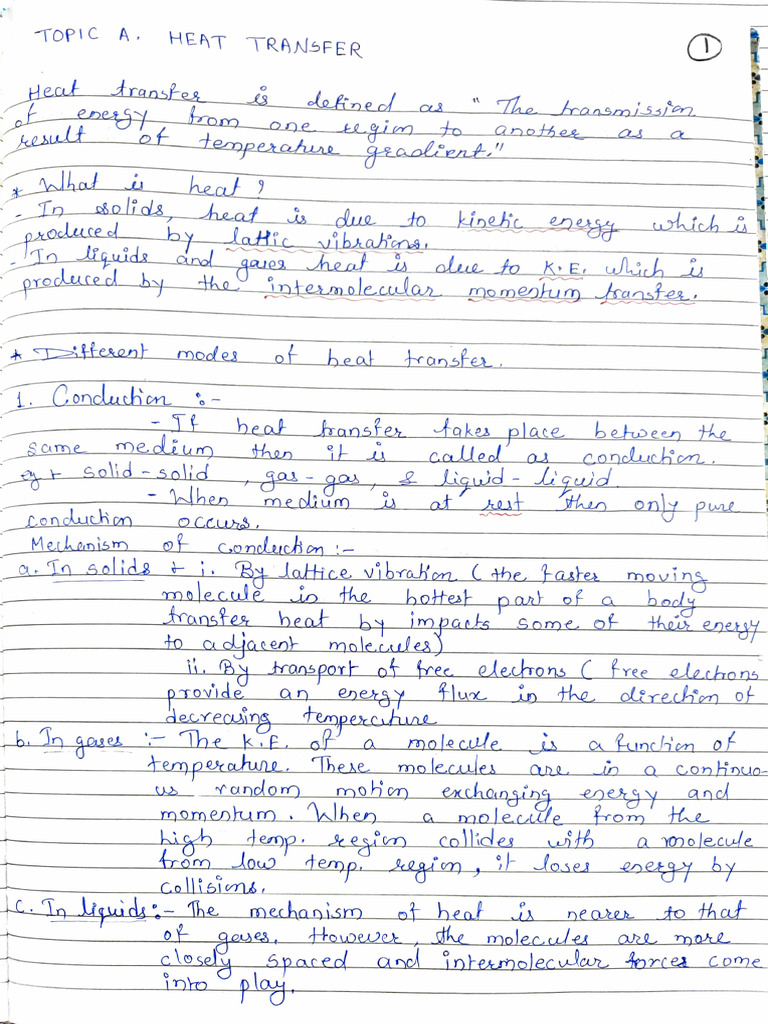 TOPIC A. HEAT TRANSFER
1
Heat transfer is defined as "The transmission
of energy from one region to another as a
result of temperature gradient."
* What is heat?
- In solids, heat is due to kinetic energy which is
produced by lattic vibrations.
- In liquids and gases heat is due to K.E. which is
produced by the intermolecular momentum transfer.
* Different modes of heat transfer.
1. Conduction :-
- If heat transfer takes place between the
same medium then it is called as conduction.
eg + solid-solid, gas-gas, & liquid-liquid.
- When medium is at rest then only pure
conduction occurs.
Mechanism of conduction :-
a. In solids + i. By lattice vibration ( the faster moving
molecule in the hottest part of a body
transfer heat by impacts some of their energy
to adjacent molecules)
ii. By transport of free electrons ( free electrons
provide an energy flux in the direction of
decreasing temperature
b. In gases :- The K.E. of a molecule is a function of
temperature. These molecules are in a continuo-
us random motion exchanging energy and
momentum. When a molecule from the
high temp. region collides with a molecule
from low temp. region, it loses energy by
collisions.
c. In liquids :- The mechanism of heat is nearer to that
of gases. However, the molecules are more
closely spaced and intermolecular forces come
into play.